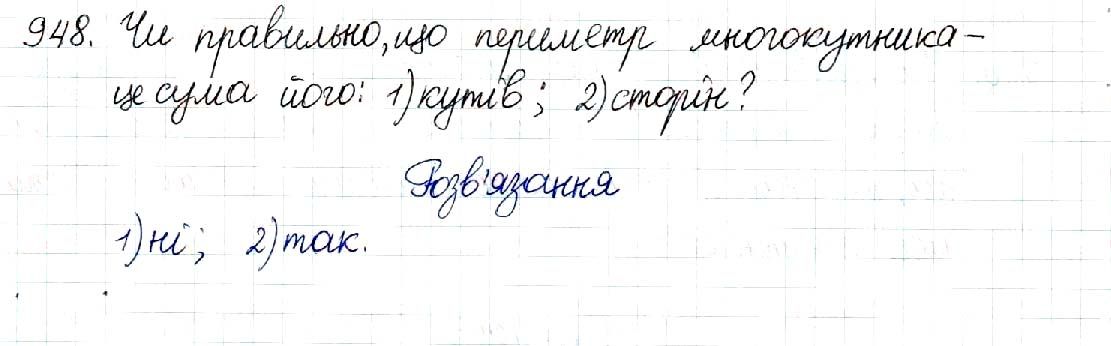 948. Чи правильно, що периметр многокутника –
це сума його: 1) кутів; 2) сторін?
Розв'язання
1) ні; 2) так.